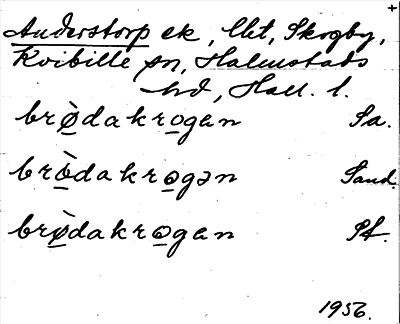 +
Anderstorp ek, Uet, Skogby,
Kvibille sn, Halmstads
hd, Hall. l.
brø̀dakrogan Sa.
brø̀dakrogən Sand.
brø̀dakrogan Pf.
1956.